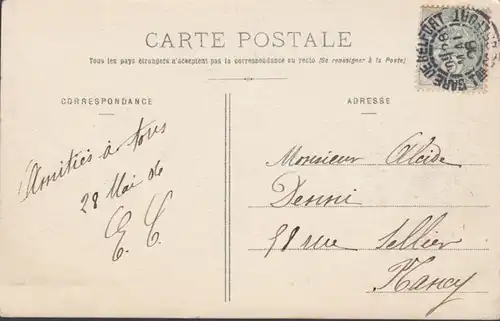 CARTE POSTALE
Tous les pays étrangers n'acceptent pas la correspondance au recto (Se renseigner à la Poste)
CORRESPONDANCE
ADRESSE
Amitiés à tous
28 Mai 06
E. C.
Monsieur Alcide
Denni
58 rue Sellier
Nancy
GARE DE BELFORT